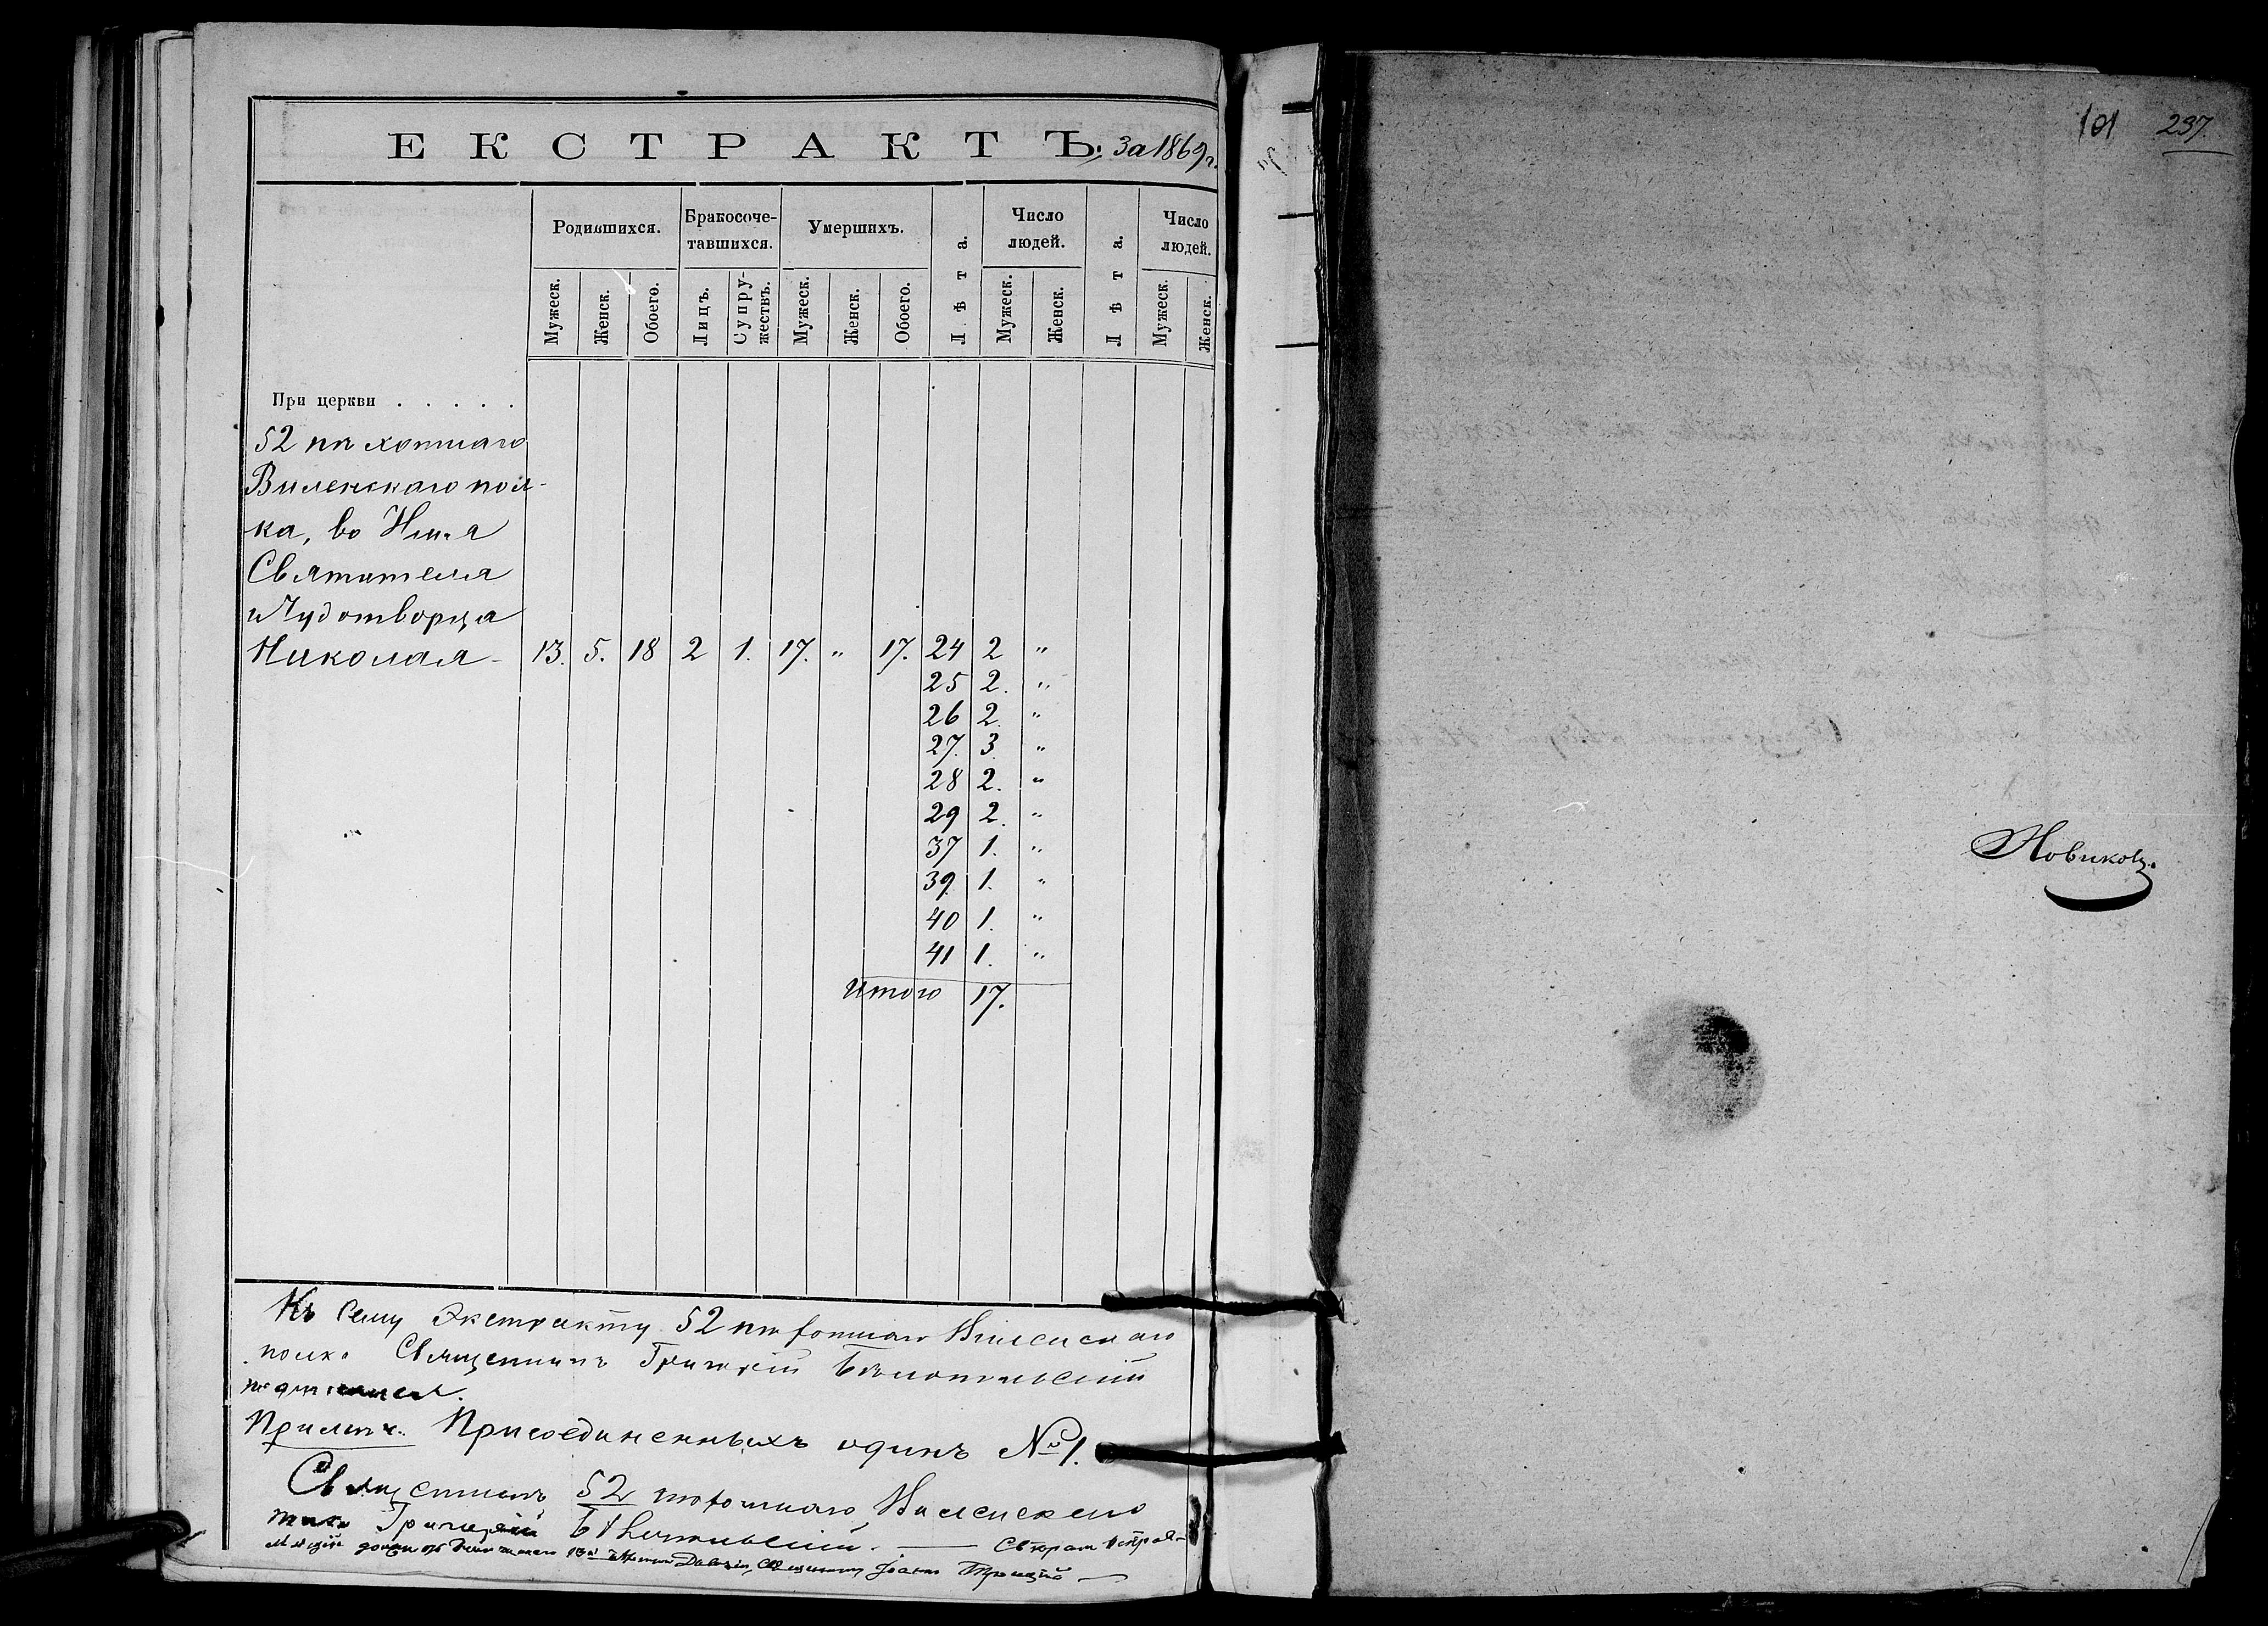 ЕКСТРАКТЪ. За 1869 г.
Родившихся. Бракосоче-тавшихся. Умершихъ. Лѣта. Число людей. Лѣта. Число людей.
Мужеск. Женск. Обоего. Лицъ. Супру-жествъ. Мужеск. Женск. Обоего. Мужеск. Женск. Мужеск. Женск.
При церкви . . . . .
52 пѣхотнаго
Виленскаго пол-
ка, во Имя
Святителя
и Чудотворца
Николая - 13. 5. 18 2 1. 17. " 17. 24 2 "
25 2. "
26 2. "
27. 3 "
28 2. "
29 2. "
37 1. "
39. 1. "
40 1. "
41 1. "
Итого 17.
Къ сему Экстракту 52 пѣхотнаго Виленскаго
полка Священникъ Григорій
подписался.
Примѣч. Присоединенныхъ одинъ № 1.
Священникъ 52 пѣхотнаго Виленскаго
полка Григорій
Священникъ Іоаннъ Троицкій
101 237
Новиковъ.